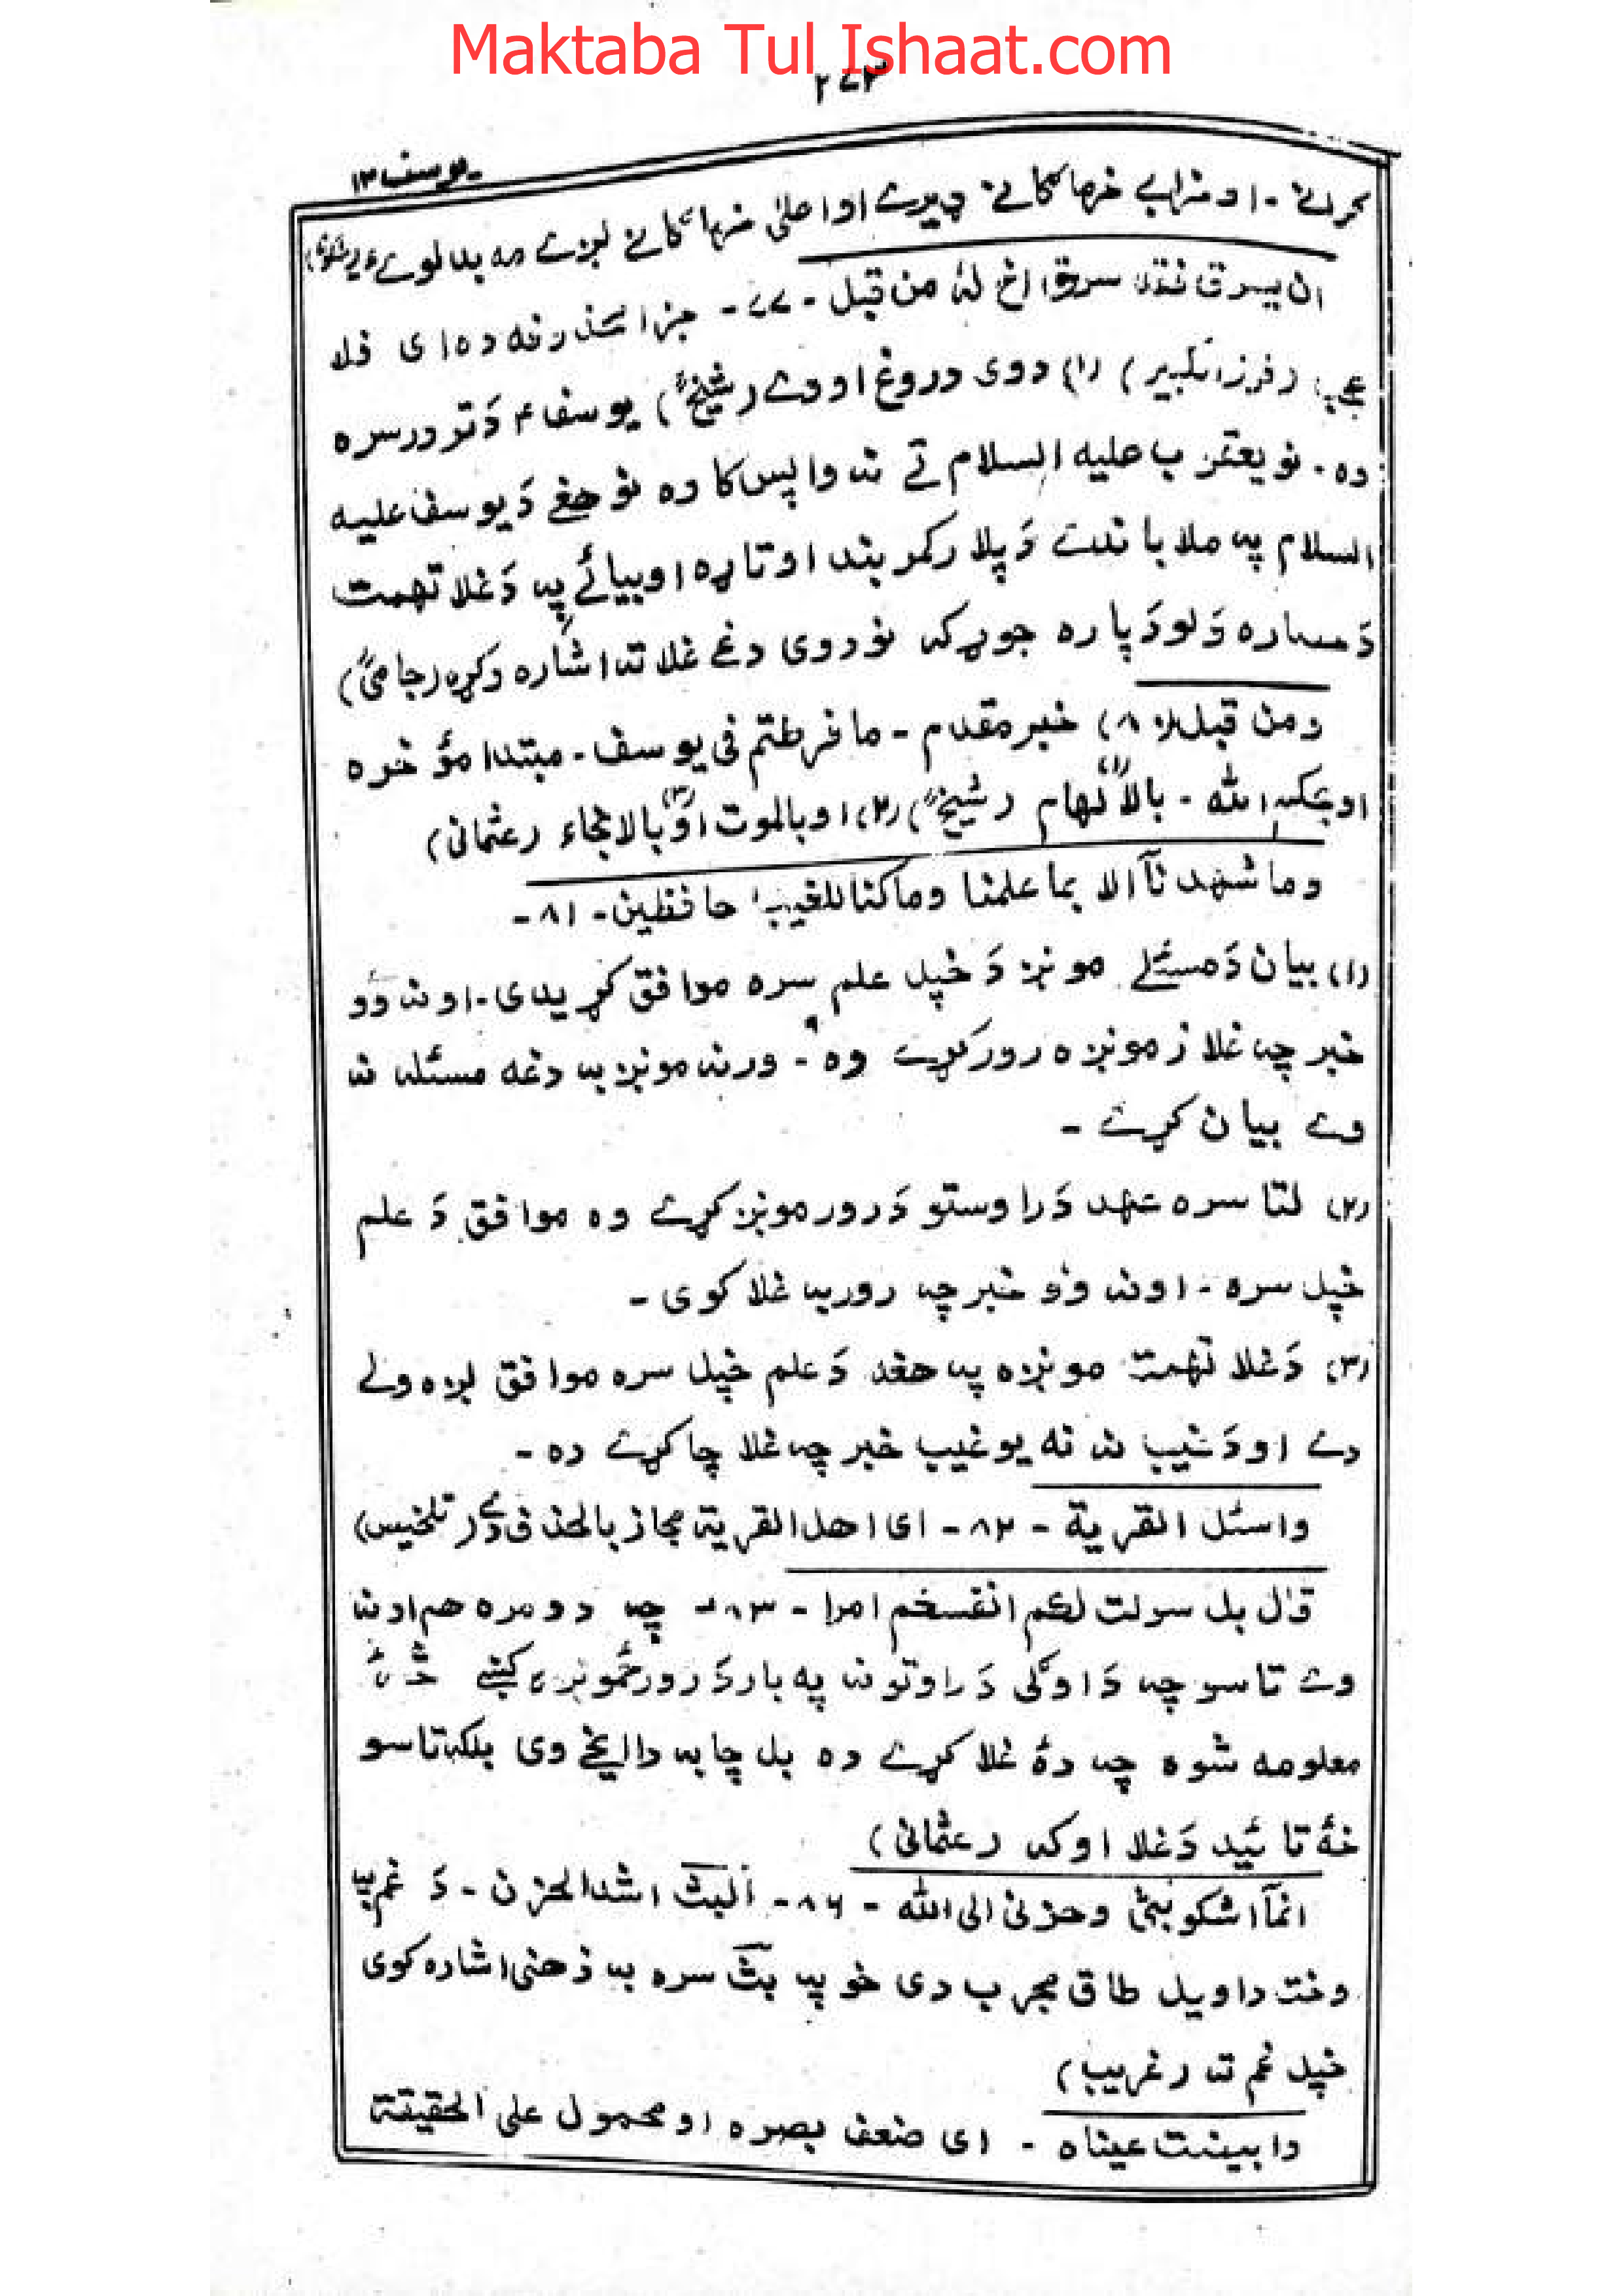 Maktaba Tul Ishaat.com
۲۷۳
یوسف ۱۳
کړے - او خرابے خرماګانے ډیرے او اعلیٰ خرماګانے لږے مه بدلوے
ان یسرق فقد سرق اخ له من قبل - ۷۷ - جزا محذوفه ده ای فلا
عجب (فوزالکبیر) (۱) دوی دروغ اووے (شیخؒ) یوسف ؑ د ترور سره
وه - نو یعقوب علیه السلام تے نه واپس کاوه نو هغے دَ یوسف علیه
السلام په ملا باندے دَ پلار کمربند اوتاړه او بیائے پِه دَ غلا تهمت
دَ حساره وَلو دَ پاره جوړ که نو دوی دغے غلا ته اشاره وکړه (جامیؒ)
ومن قبل (۸۰) خبر مقدم - ما فرطتم فی یوسف - مبتدا مؤخره
او یحکم الله - (۱) بالالهام (شیخؒ) (۲) او بالموت (۳) او بالانجاء (عثمانی)
وما شهدنآ الا بما علمنا وماکنا للغیب حافظین - ۸۱ -
(۱) بیان دَ مسئلے مونږ دَ خپل علم سره موافق کړیدی - او نه وُو
خبر چه غلا زمونږه رور کړے وه - ورنه مونږ به دغه مسئله نه
وے بیان کړے -
(۲) لتا سره عهد دَ راوستو دَ رور مونږ کړے وه موافق دَ علم
خپل سره - او نه وُو خبر چه رور به غلا کوی -
(۳) دَ غلا تهمت مونږه په هغه دَ علم خپل سره موافق لږولے
دے او دَ غیب نه نه یو غیب خبر چه غلا چا کړے ده -
واسئل القریة - ۸۲ - ای اهل القریة مجاز بالحذف دے (تلخیص)
قال بل سولت لکم انفسکم امرا - ۸۳ - چه دومره هم او نه
وے تاسو چه دَ اوګی دَ راوتو نه په بار دَ رور ځمونږه کښے څۀ
معلومه شوه چه دۀ غلا کړے ده بل چا به دا ایخے وی بلکه تاسو
خۀ تائید دَ غلا اوکه (عثمانی)
انمآ اشکو بثی وحزنی الی الله - ۸۶ - البث اشد الحزن - دَ غم په
وخت دا ویل طاق مجرب دی خو په بث سره به ذهنی اشاره کوی
خپل غم ته (غریب)
وابیضت عیناه - ای ضعف بصره او محمول علی الحقیقة